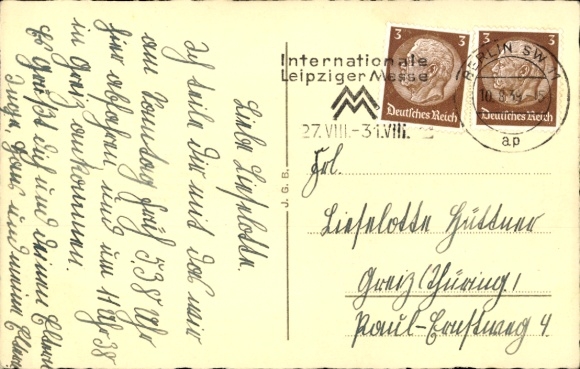 Liebe Lieselotte.
Ich teile Dir mit das wir
am Sonntag früh 5.38 Uhr
hier abfahren und um 11 Uhr 38
in Greiz ankommen.
Es Grüßt dich und deinen Eltern
Inge, Hans und meine Eltern
J. G. B.
Internationale
Leipziger Messe
MM
27.VIII.–31.VIII.
3 3
Deutsches Reich
3 3
Deutsches Reich
BERLIN SW 11
ap
Frl.
Lieselotte Hüttner
Greiz (Thüring.)
Paul-Ernstweg 4